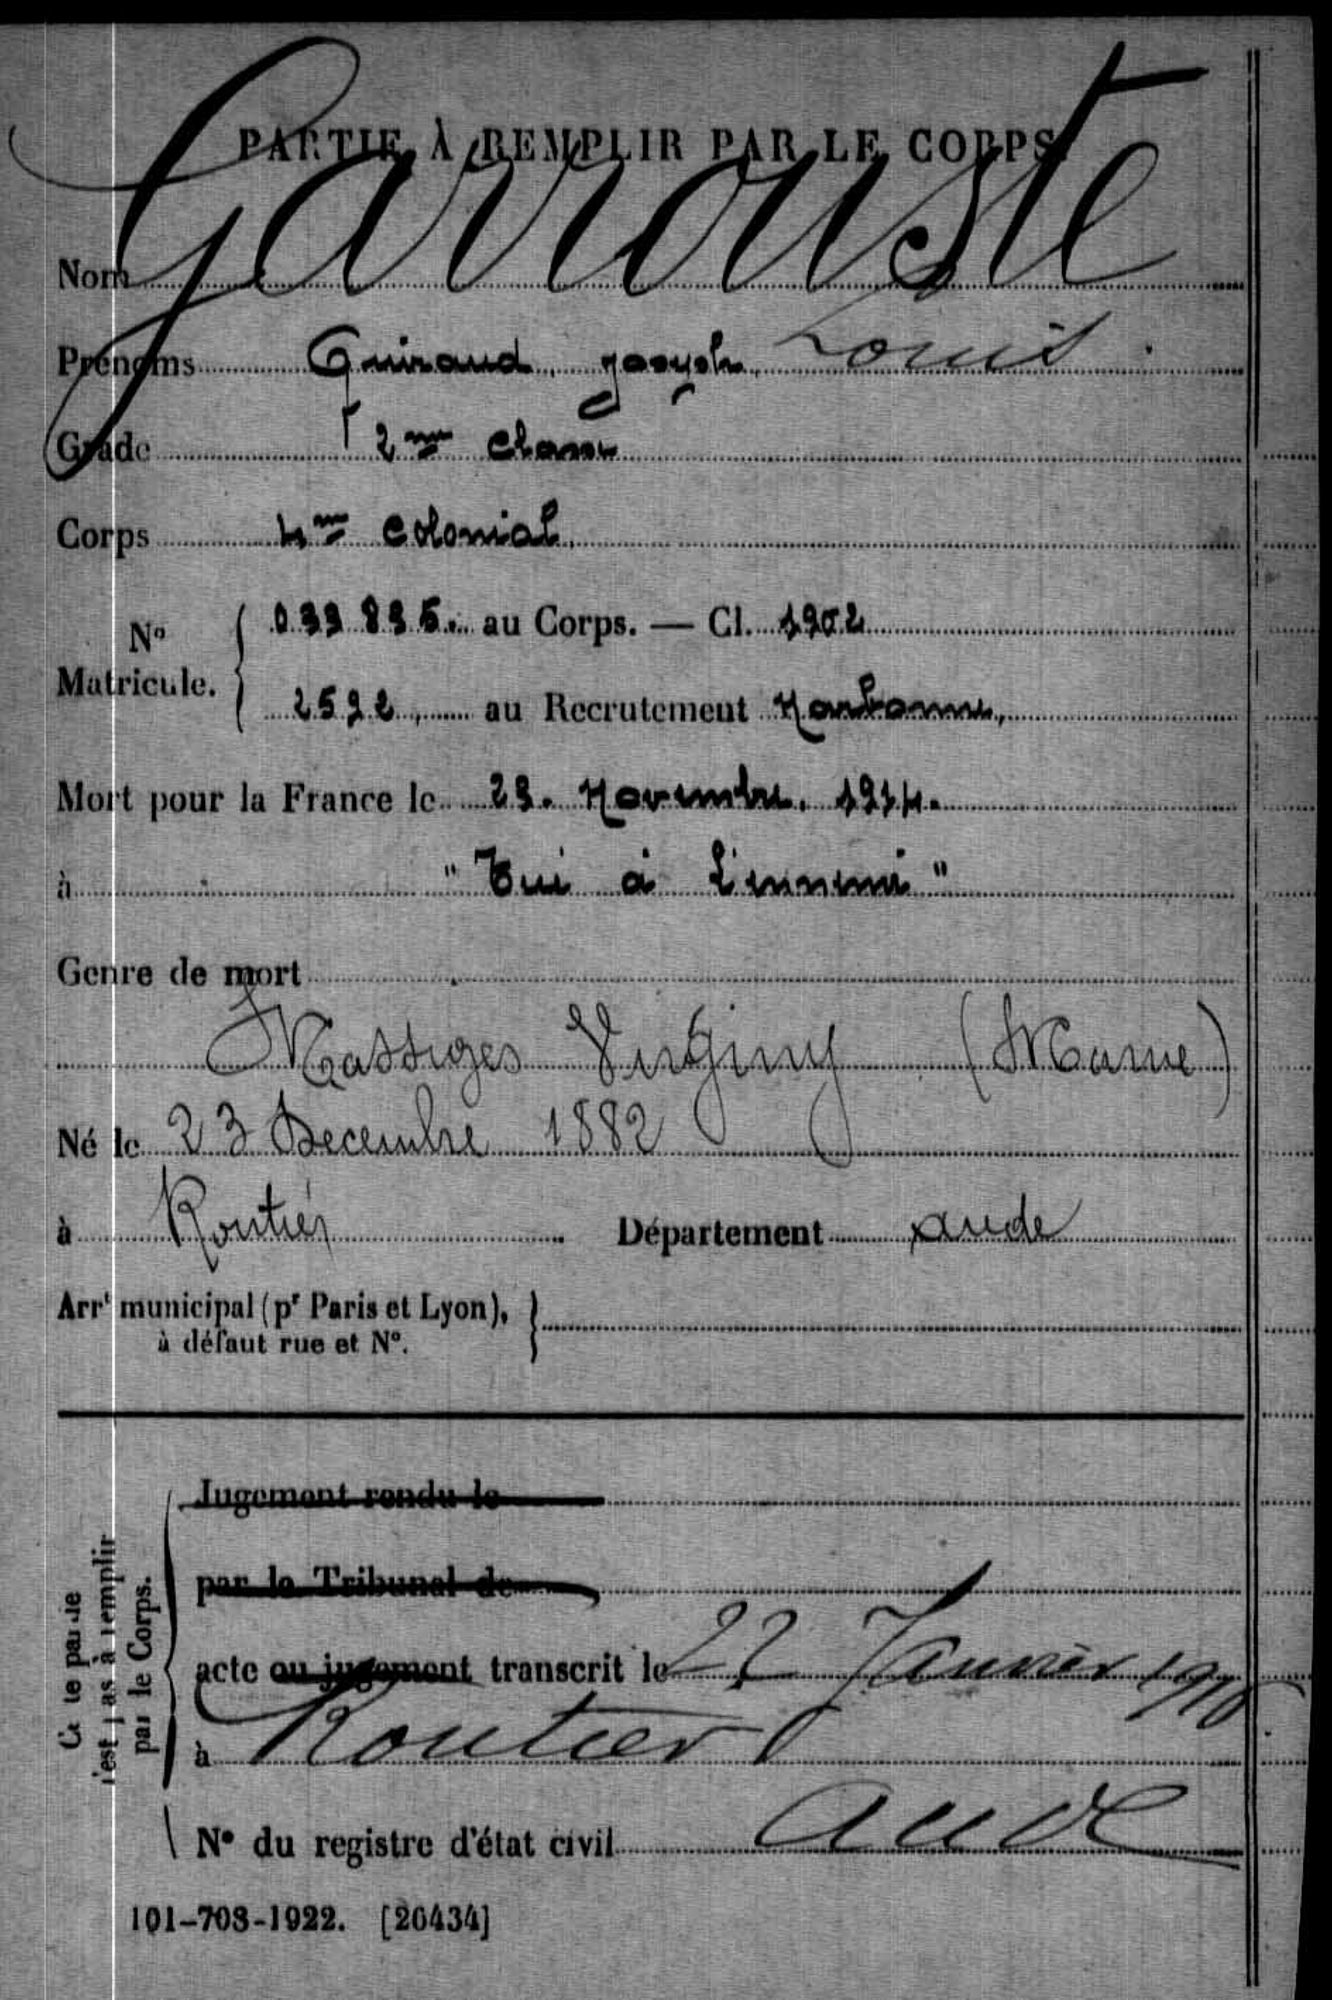 PARTIE À REMPLIR PAR LE CORPS.
Nom Garrouste
Prénoms Guiraud, Joseph, Louis.
Grade 2me Classe
Corps 4me Colonial.
No Matricule. { 039835. au Corps. — Cl. 1902
2592, au Recrutement Narbonne,
Mort pour la France le 29. Novembre. 1914.
à "Tué à l'ennemi"
Genre de mort
Massiges Virginy (Marne)
Né le 23 Decembre 1882
à Routier Département aude
Arrt municipal (pr Paris et Lyon), }
à défaut rue et No.
Jugement rendu le
par le Tribunal de
acte ou jugement transcrit le 22 Janvier
à Routier
Aude
No du registre d'état civil
Cette partie
n'est pas à remplir
par le Corps.
101-708-1922. [26434]